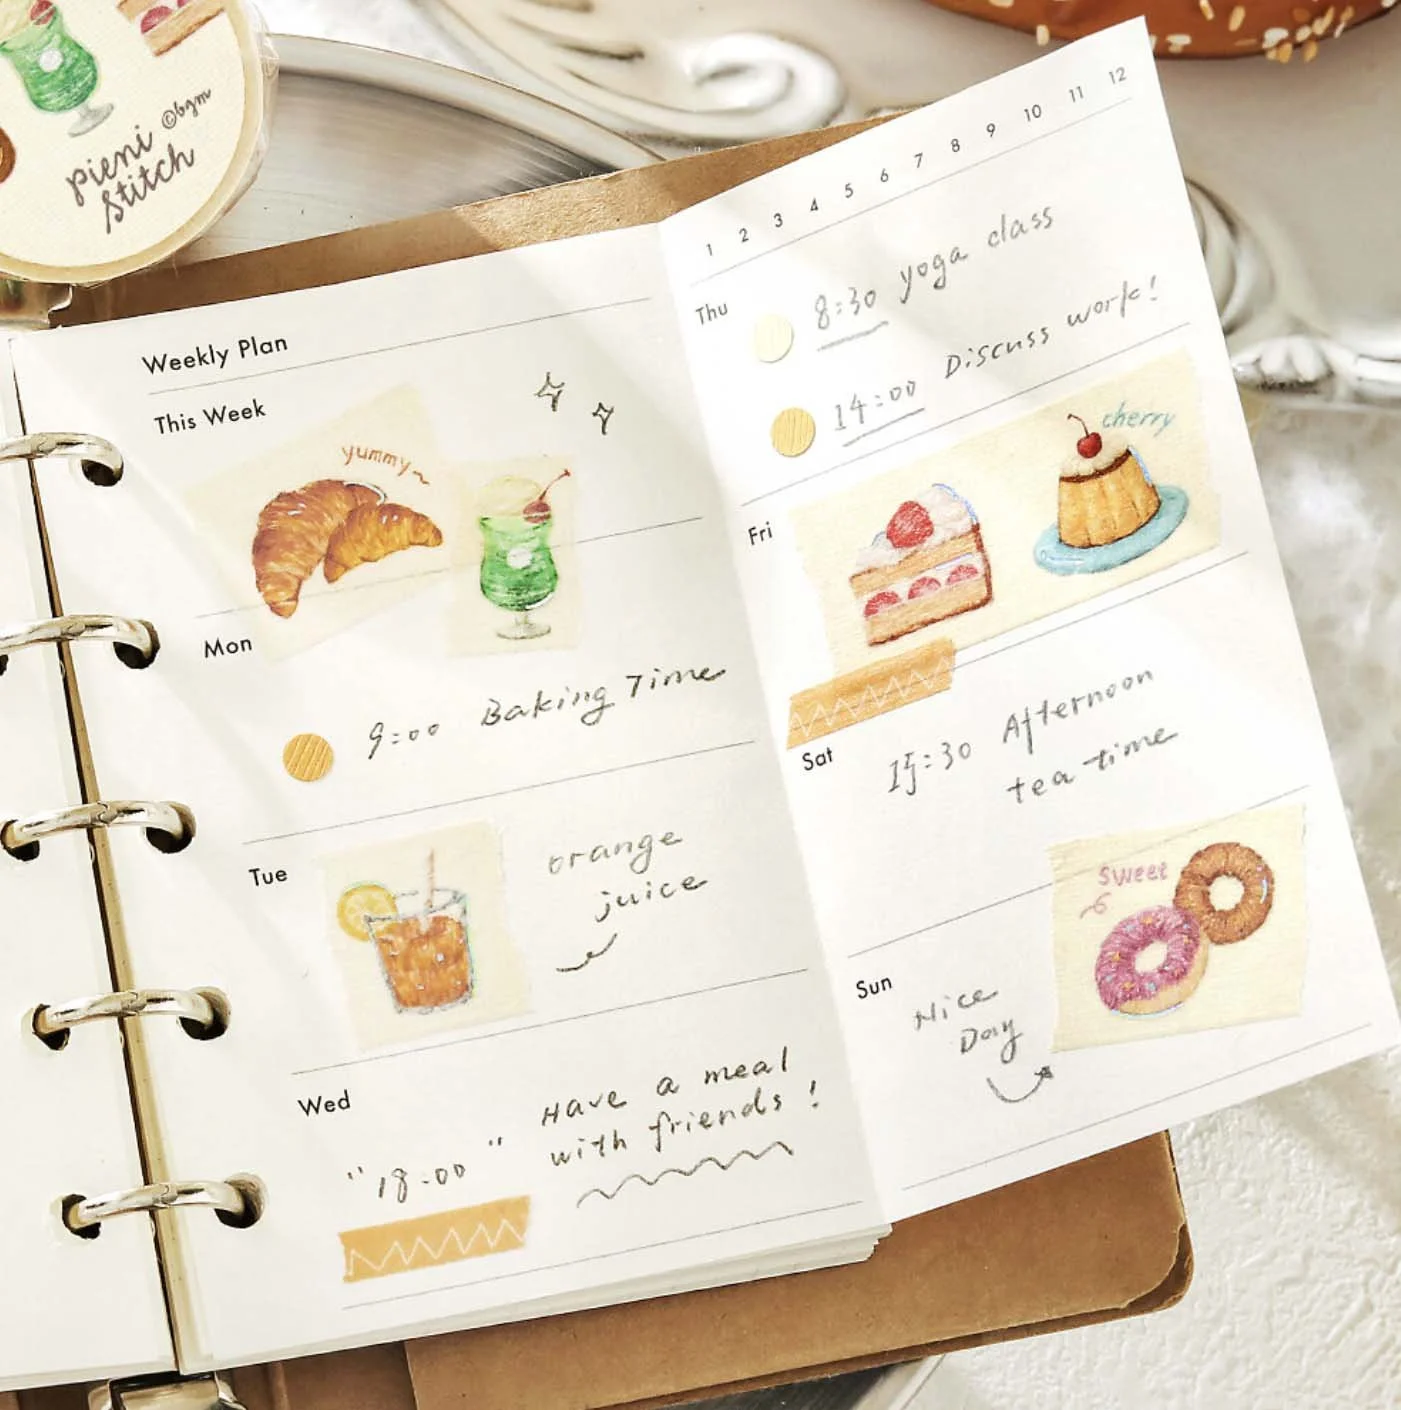 pieni
Stitch
©bgm
Weekly Plan
This Week
yummy~
Mon
9:00 Baking Time
Tue
orange
juice
Wed
"18:00" Have a meal
with friends!
1 2 3 4 5 6 7 8 9 10 11 12
Thu
8:30 yoga class
14:00 Discuss work!
Fri
cherry
Sat
15:30 Afternoon
tea time
Sun
Nice
Day
sweet